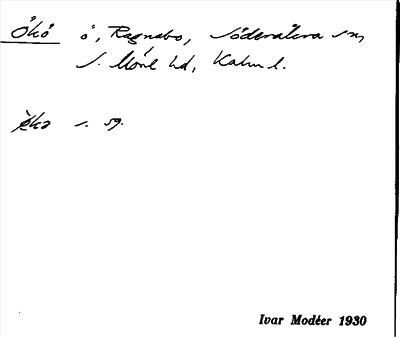 Ökö ö, Ragnabo, Söderåkra sn,
S. Möre hd, Kalm l.
ö̀kə s. sg.
Ivar Modéer 1930